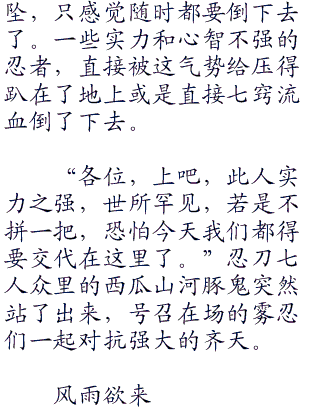 坠，只感觉随时都要倒下去
了。一些实力和心智不强的
忍者，直接被这气势给压得
趴在了地上或是直接七窍流
血倒了下去。
“各位，上吧，此人实
力之强，世所罕见，若是不
拼一把，恐怕今天我们都得
要交代在这里了。”忍刀七
人众里的西瓜山河豚鬼突然
站了出来，号召在场的雾忍
们一起对抗强大的齐天。
风雨欲来